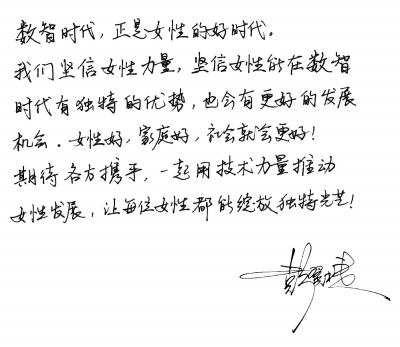 数智时代，正是女性的好时代。
我们坚信女性力量，坚信女性能在数智
时代有独特的优势，也会有更好的发展
机会。女性好，家庭好，社会就会更好！
期待各方携手，一起用技术力量推动
女性发展，让每位女性都能绽放独特光芒！